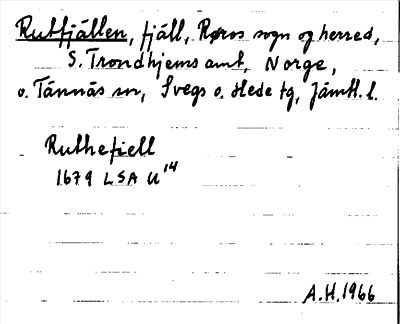 Rutfjällen, fjäll, Røros sogn og herred,
S. Trondhjems amt, Norge,
o. Tännäs sn, Svegs o. Hede tg, Jämtl. l.
Ruthefiell
1679 LSA U¹⁴
A.H. 1966